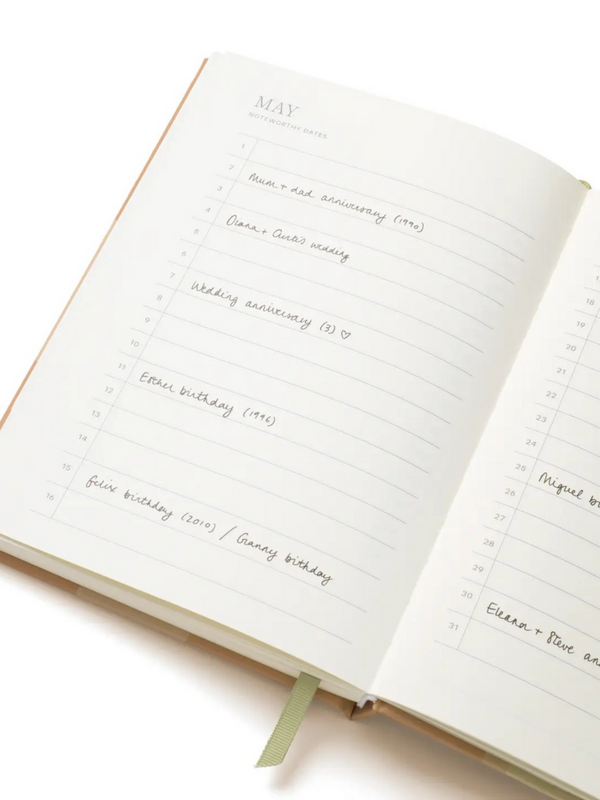 MAY
NOTEWORTHY DATES
1
2 Mum + dad anniversary (1990)
3
4 Diana + Curtis wedding
5
6
7 Wedding anniversary (3) ♡
8
9
10
11 Esther birthday (1996)
12
13
14
15 Felix birthday (2010) / Granny birthday
16
18
19
20
21
22
23
24
25 Miguel bi
26
27
28
29
30 Eleanor + Steve an
31